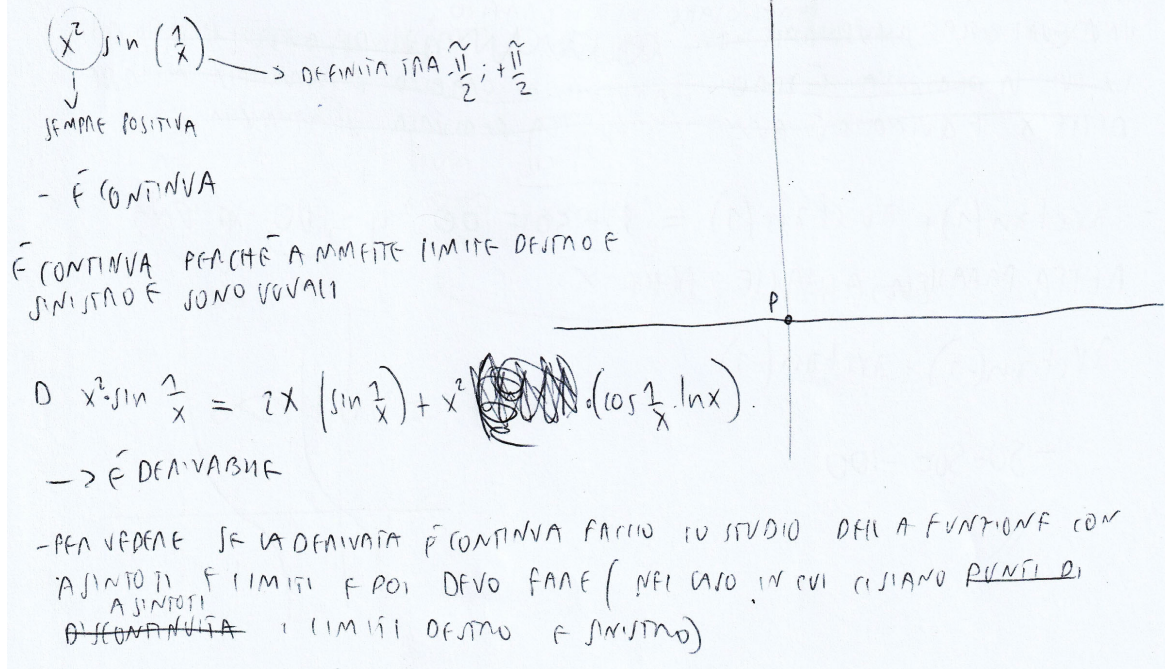 x² sin (1/x) → DEFINITA TRA -π/2 ; +π/2
SEMPRE POSITIVA
- È CONTINUA
È CONTINUA PERCHÈ AMMETTE LIMITE DESTRO E
SINISTRO E SONO UGUALI
P
D x²·sin 1/x = 2x (sin 1/x) + x² ·(cos 1/x · lnx).
→ È DERIVABILE
- PER VEDERE SE LA DERIVATA È CONTINUA FACCIO LO STUDIO DELLA FUNZIONE CON
ASINTOTI E LIMITI E POI DEVO FARE ( NEL CASO IN CUI CI SIANO PUNTI DI
ASINTOTI
DISCONTINUITÀ I LIMITI DESTRO E SINISTRO)